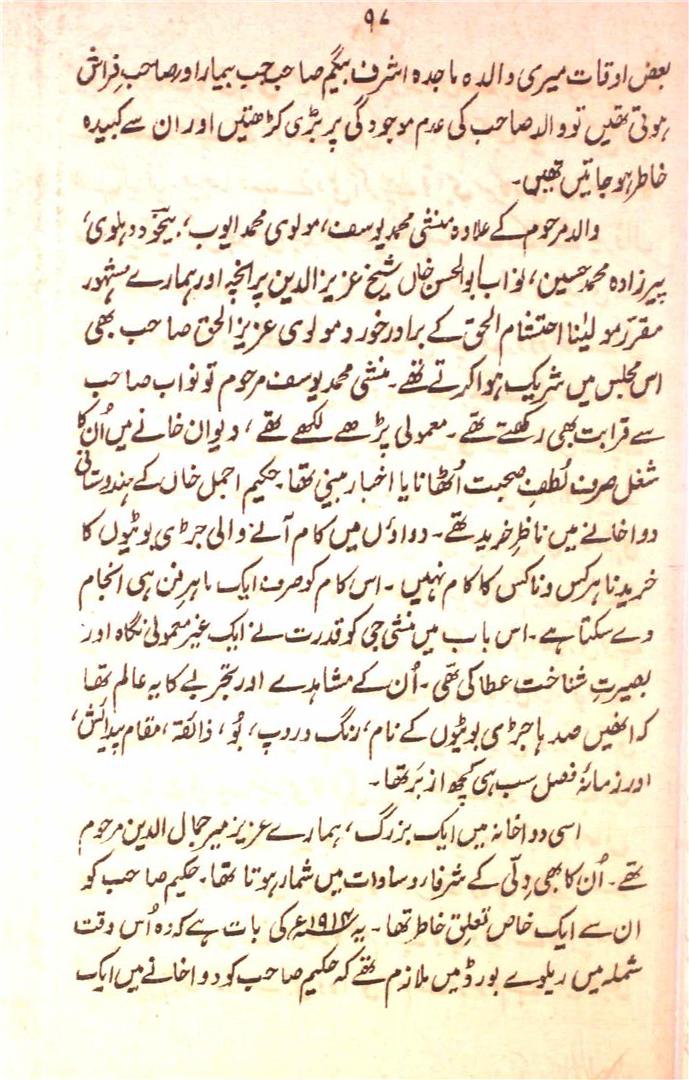 ۹۷
بعض اوقات میری والدہ ماجدہ اشرف بیگم صاحب جب بیمار اور صاحبِ فراش
ہوتی تھیں تو والد صاحب کی عدم موجودگی پر بڑی کڑھتیں اور ان سے کبیدہ
خاطر ہو جاتیں تھیں۔
والد مرحوم کے علاوہ منشی محمد یوسف، مولوی محمد ایوب، بیخود دہلوی،
پیرزادہ محمد حسین، نواب ابوالحسن خاں شیخ عزیز الدین پرانچہ اور ہمارے مشہور
مقرر مولینٰا احتشام الحق کے برادر خورد مولوی عزیز الحق صاحب بھی
اس مجلس میں شریک ہوا کرتے تھے۔ منشی محمد یوسف مرحوم تو نواب صاحب
سے قرابت بھی رکھتے تھے۔ معمولی پڑھے لکھے تھے، دیوان خانے میں اُن کا
شغل صرف لُطفِ صحبت اُٹھانا یا اخبار بینی تھا۔ حکیم اجمل خاں کے ہندوستانی
دواخانے میں ناظرِ خرید تھے۔ دواوٴں میں کام آنے والی جڑی بوٹیوں کا
خریدنا ہر کس و ناکس کا کام نہیں۔ اس کام کو صرف ایک ماہرِ فن ہی انجام
دے سکتا ہے۔ اس باب میں منشی جی کو قدرت نے ایک غیر معمولی نگاہ اور
بصیرتِ شناخت عطا کی تھی۔ اُن کے مشاہدے اور تجربے کا یہ عالم تھا
کہ انھیں صدہا جڑی بوٹیوں کے نام، رنگ و روپ، بُو، ذائقہ، مقام پیدائش،
اور زمانۂ فصل سب ہی کچھ ازبر تھا۔
اسی دواخانہ میں ایک بزرگ، ہمارے عزیز میر جمال الدین مرحوم
تھے۔ اُن کا بھی دِلّی کے شرفا و سادات میں شمار ہوتا تھا۔ حکیم صاحب کو
ان سے ایک خاص تعلقِ خاطر تھا۔ یہ ۱۹۱۴ء کی بات ہے کہ وہ اُس وقت
شملہ میں ریلوے بورڈ میں ملازم تھے کہ حکیم صاحب کو دواخانے میں ایک